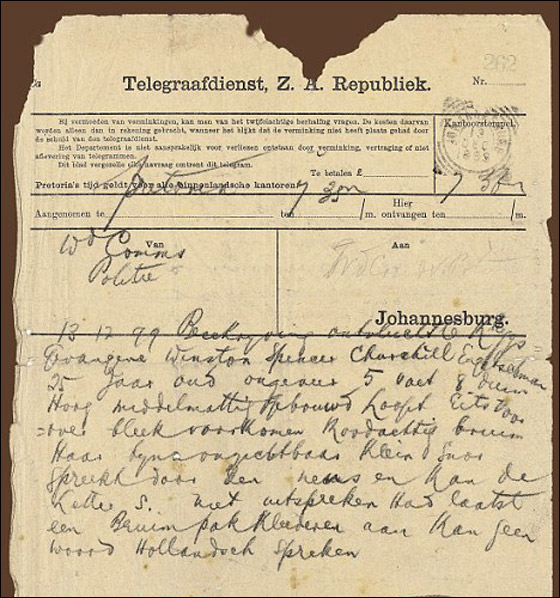 262
Telegraafdienst, Z. A. Republiek.
Nr.
Bij vermoeden van verminkingen, kan men van het twijfelachtige herhaling vragen. De kosten daarvan
worden alleen dan in rekening gebracht, wanneer het blijkt dat de verminking niet heeft plaats gehad door
de schuld van den telegraafdienst.
Het Departement is niet aansprakelijk voor verliezen ontstaan door verminking, vertraging of niet
aflevering van telegrammen.
Dit blad vergezelle elke navraag omtrent dit telegram.
Te betalen £
Kantoorstempel.
Pretoria's tijd geldt voor alle binnenlandsche kantoren
Aangenomen te Pretoria ten /m. Hier ontvangen ten /m.
Van
Aan
Wd Comms
Politie
Johannesburg.
18 12 99 ontvluchte Krygs
Gevangene Winston Spencer Churchill Engelsman
25 Jaar oud ongeveer 5 voet 8 duim
Hoog middelmatig gebouwd Loopt Eits voor
over bleek voorkomen Roodachtig bruin
Haar byna onzichtbaar Klein Snor
Spreekt door den neus en Kan de
Letter S. niet uitspreken Had laatst
een Bruin pak Klederen aan Kan geen
woord Hollandsch Spreken